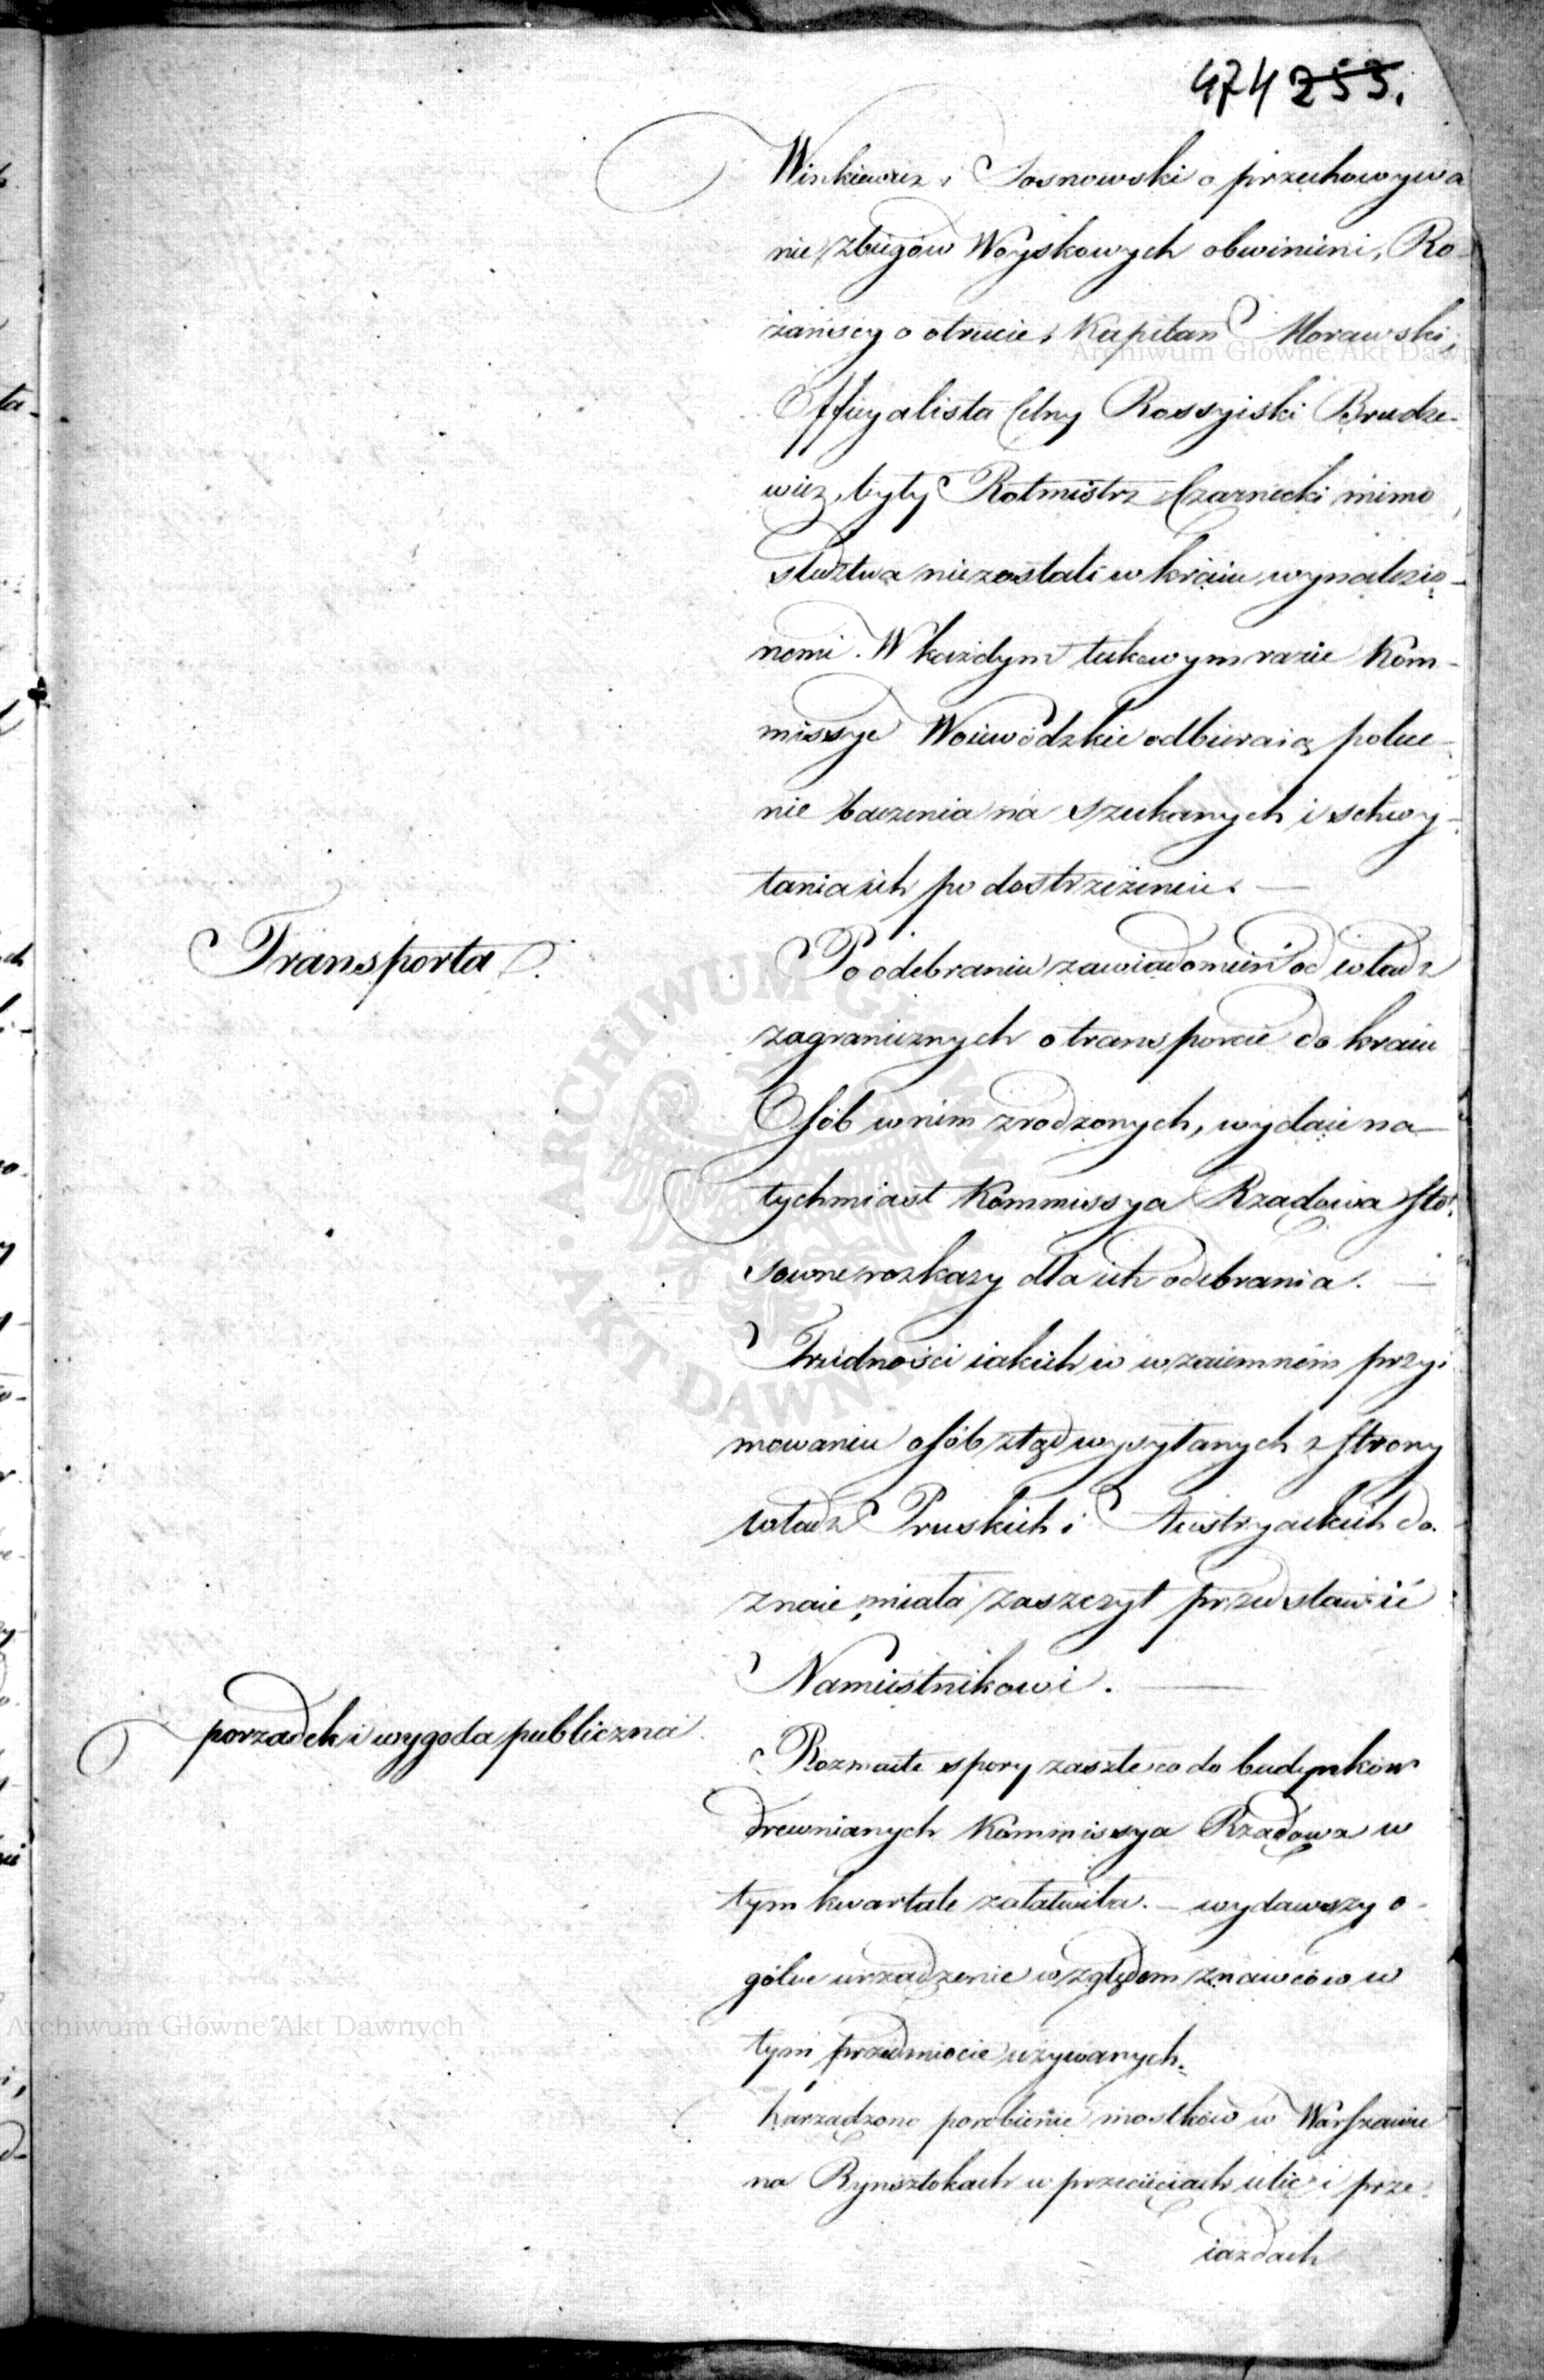 474 253.
Winkiewicz i Sosnowski o przechowywa
nie zbiegów Woyskowych obwinieni, Ro-
żańscy o otrucie, Kapitan Morawski,
Officyalista Celny Rossyiski Brudze-
wicz, były Rotmistrz Czarnecki mimo
śledztwa niezostali w kraiu wynalezio-
nemi. W każdym takowym razie Kom-
missye Woiewódzkie odbieraią polece-
nie baczenia na szukanych i schwy-
tania ich po dostrzeżeniu. —
Transporta
Po odebraniu zawiadomień od władz
zagranicznych o transporcie do kraiu
Osób w nim zrodzonych, wydaie na-
tychmiast Kommissya Rządowa sto-
sowne rozkazy dla ich odebrania. —
Trudności iakich w wzaiemném przyi-
mowaniu osób ztąd wysyłanych z strony
władz Pruskich i Austryackich do-
znaie, miała zaszczyt przedstawić
Namiestnikowi. —
porządek i wygoda publiczna
Rozmaite spory zaszłe co do budynków
drewnianych Kommissya Rządowa w
tym kwartale załatwiła. — wydawszy o-
gólne urządzenie względem znawców w
tym przedmiocie używanych.
Zarządzono porobienie mostków w Warszawie
na Rynsztokach w przecięciach ulic i prze-
iazdach
Archiwum Główne Akt Dawnych
ARCHIWUM GŁÓWNE · AKT DAWNYCH
Archiwum Główne Akt Dawnych